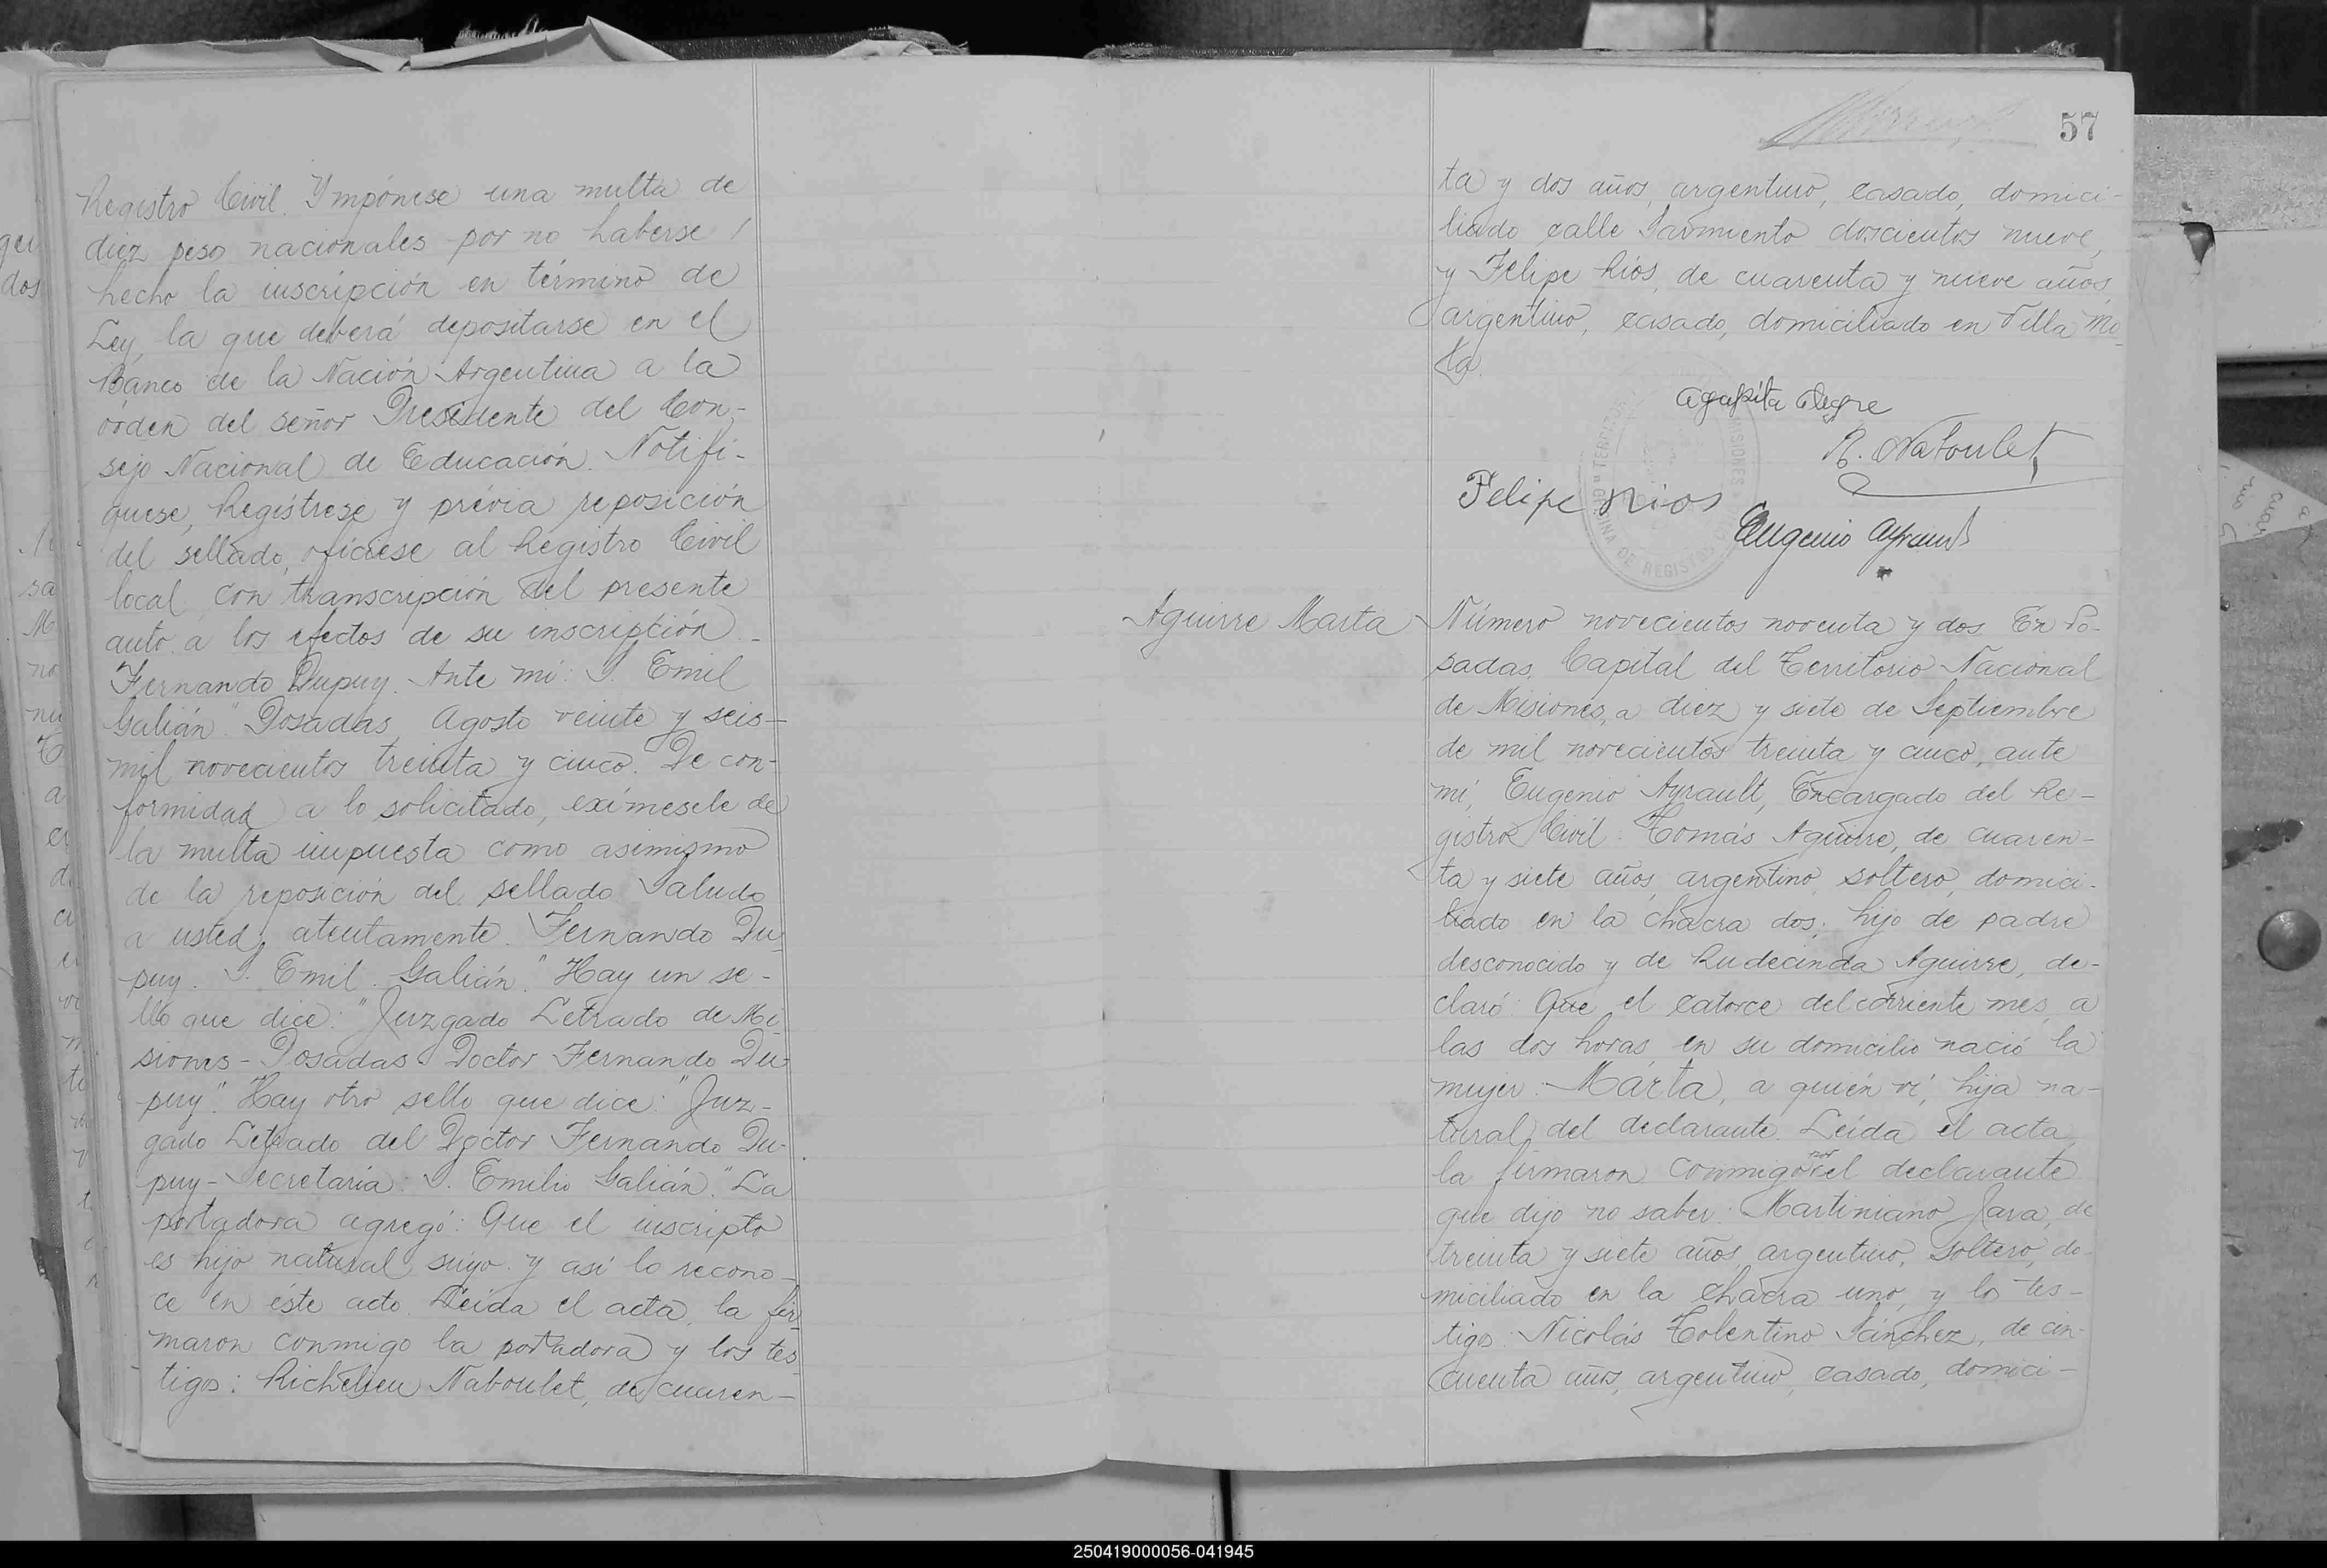 Registro Civil. Ympónese una multa de
diez peso nacionales por no haberse
hecho la inscripción en término de
Ley, la que deberá depositarse en el
Banco de la Nación Argentina a la
órden del señor Presidente del Con-
sejo Nacional de Educación. Notifí-
quese, Regístrese y prévia reposición
del sellado, ofíciese al Registro Civil
local con transcripción del presente
auto a los efectos de su inscripción.-
Fernando Dupuy. Ante mi: S. Emil
Galián." Posadas, Agosto veinte y seis-
mil novecientos treinta y cinco. De con-
formidad a lo solicitado, exímesele de
la multa impuesta como asimismo
de la reposición del sellado. Saludo
a usted, atentamente. Fernando Du-
puy. S. Emil. Galián." Hay un se-
llo que dice: "Juzgado Letrado de Mi-
siones - Posadas Doctor Fernando Du-
puy". Hay otro sello que dice: "Juz-
gado Letrado del Doctor Fernando Du-
puy - Secretaría: S. Emilio Galián." La
portadora agregó: Que el inscripto
es hijo natural suyo y así lo recono-
ce en éste acto. Leída el acta, la fir-
maron conmigo la portadora y los tes-
tigos: Richelieu Naboulet, de cuaren-
57
ta y dos años, argentino, casado, domici-
liado calle Sarmiento doscientos nueve,
y Felipe Ríos, de cuarenta y nueve años,
argentino, casado, domiciliado en Villa Mo-
ta.
Agapita Alegre
R. Naboulet
Felipe Rios
Eugenio Ayrault
Aguirre Marta
Número novecientos noventa y dos. En Po-
sadas, Capital del Territorio Nacional
de Misiones, a diez y siete de Septiembre
de mil novecientos treinta y cinco, ante
mí, Eugenio Ayrault, Encargado del Re-
gistro Civil: Tomás Aguirre, de cuaren-
ta y siete años, argentino, soltero, domici-
liado en la chacra dos; hijo de padre
desconocido y de Rudecinda Aguirre, de-
claró: Que el catorce del corriente mes, a
las dos horas, en su domicilio nació la
mujer: Márta, a quién ví, hija na-
tural del declarante. Leída el acta,
la firmaron conmigo por el declarante
que dijo no saber: Martiniano Jara, de
treinta y siete años, argentino, soltero, do-
miciliado en la chacra uno, y los tes-
tigos: Nicolás Tolentino Sánchez, de cin-
cuenta años, argentino, casado, domici-
250419000056-041945